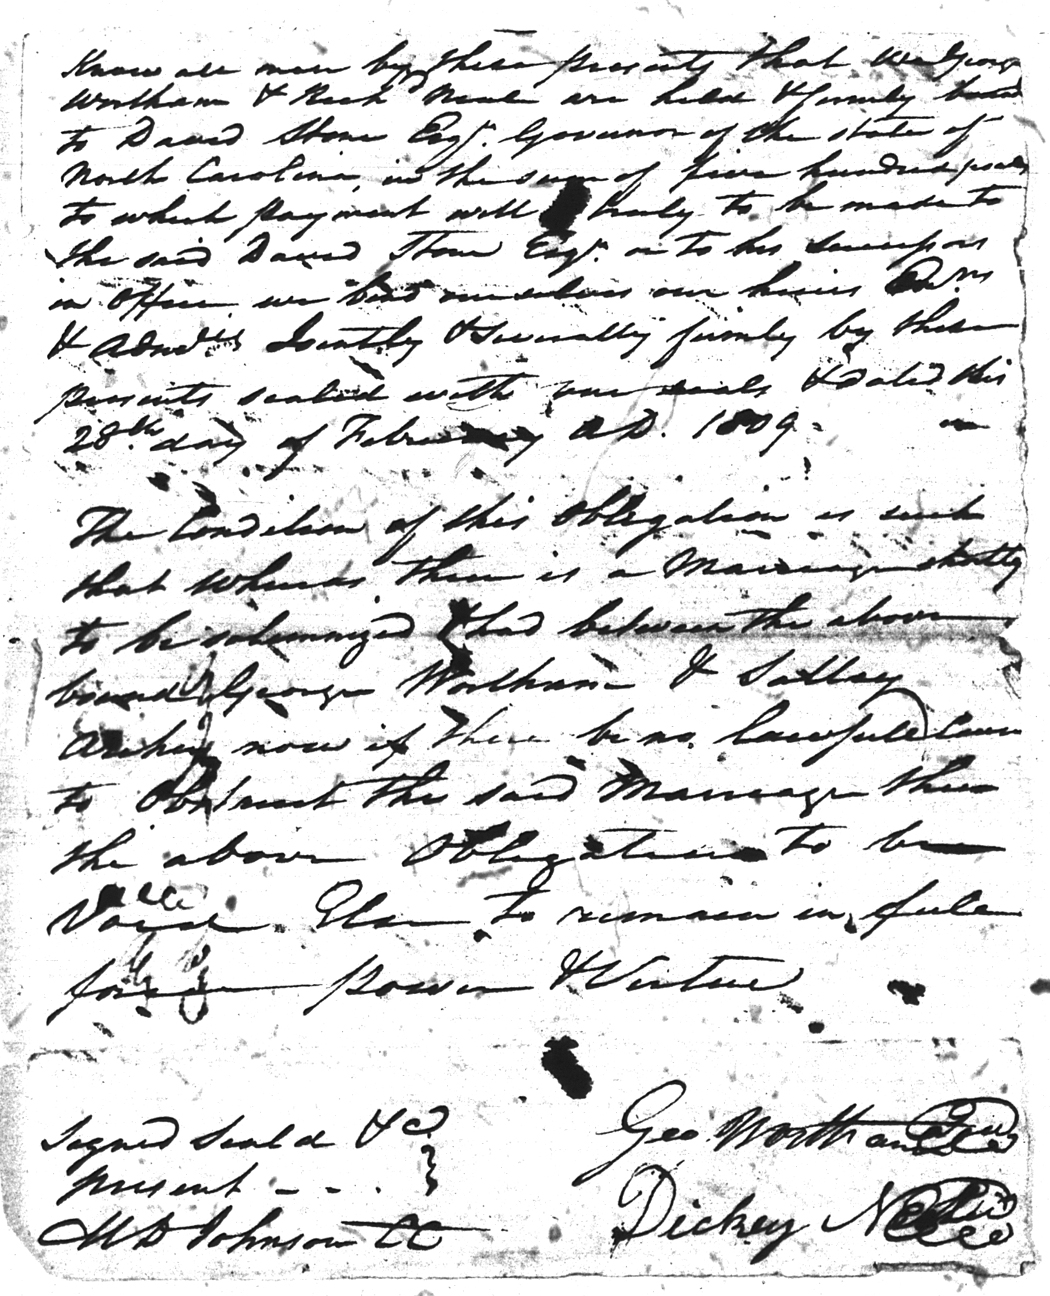 Know all men by these presents that we George
Wortham & Richd Neal are held & firmly bound
to David Stone Esqr. Governor of the state of
North Carolina, in the sum of five hundred pounds
to which payment well truly to be made to
the said David Stone Esqr. or to his successors
in office we bind ourselves our heirs
& Admrs Jointly & Severally firmly by these
presents sealed with our seals & dated this
28th day of February AD. 1809.
The Condition of this Obligation is such
that whereas there is a Marriage shortly
to be solemnized & had between the above
bound George Wortham & Salley
now if there be no lawfull cause
to Obstruct the said Marriage then
the above Obligation to be
Void Else to remain in full
force power & Virtue
Signed Seald & cd
present - - .
Geo. Wortham Seal
Dickey Neal Seal
MD Johnson CC